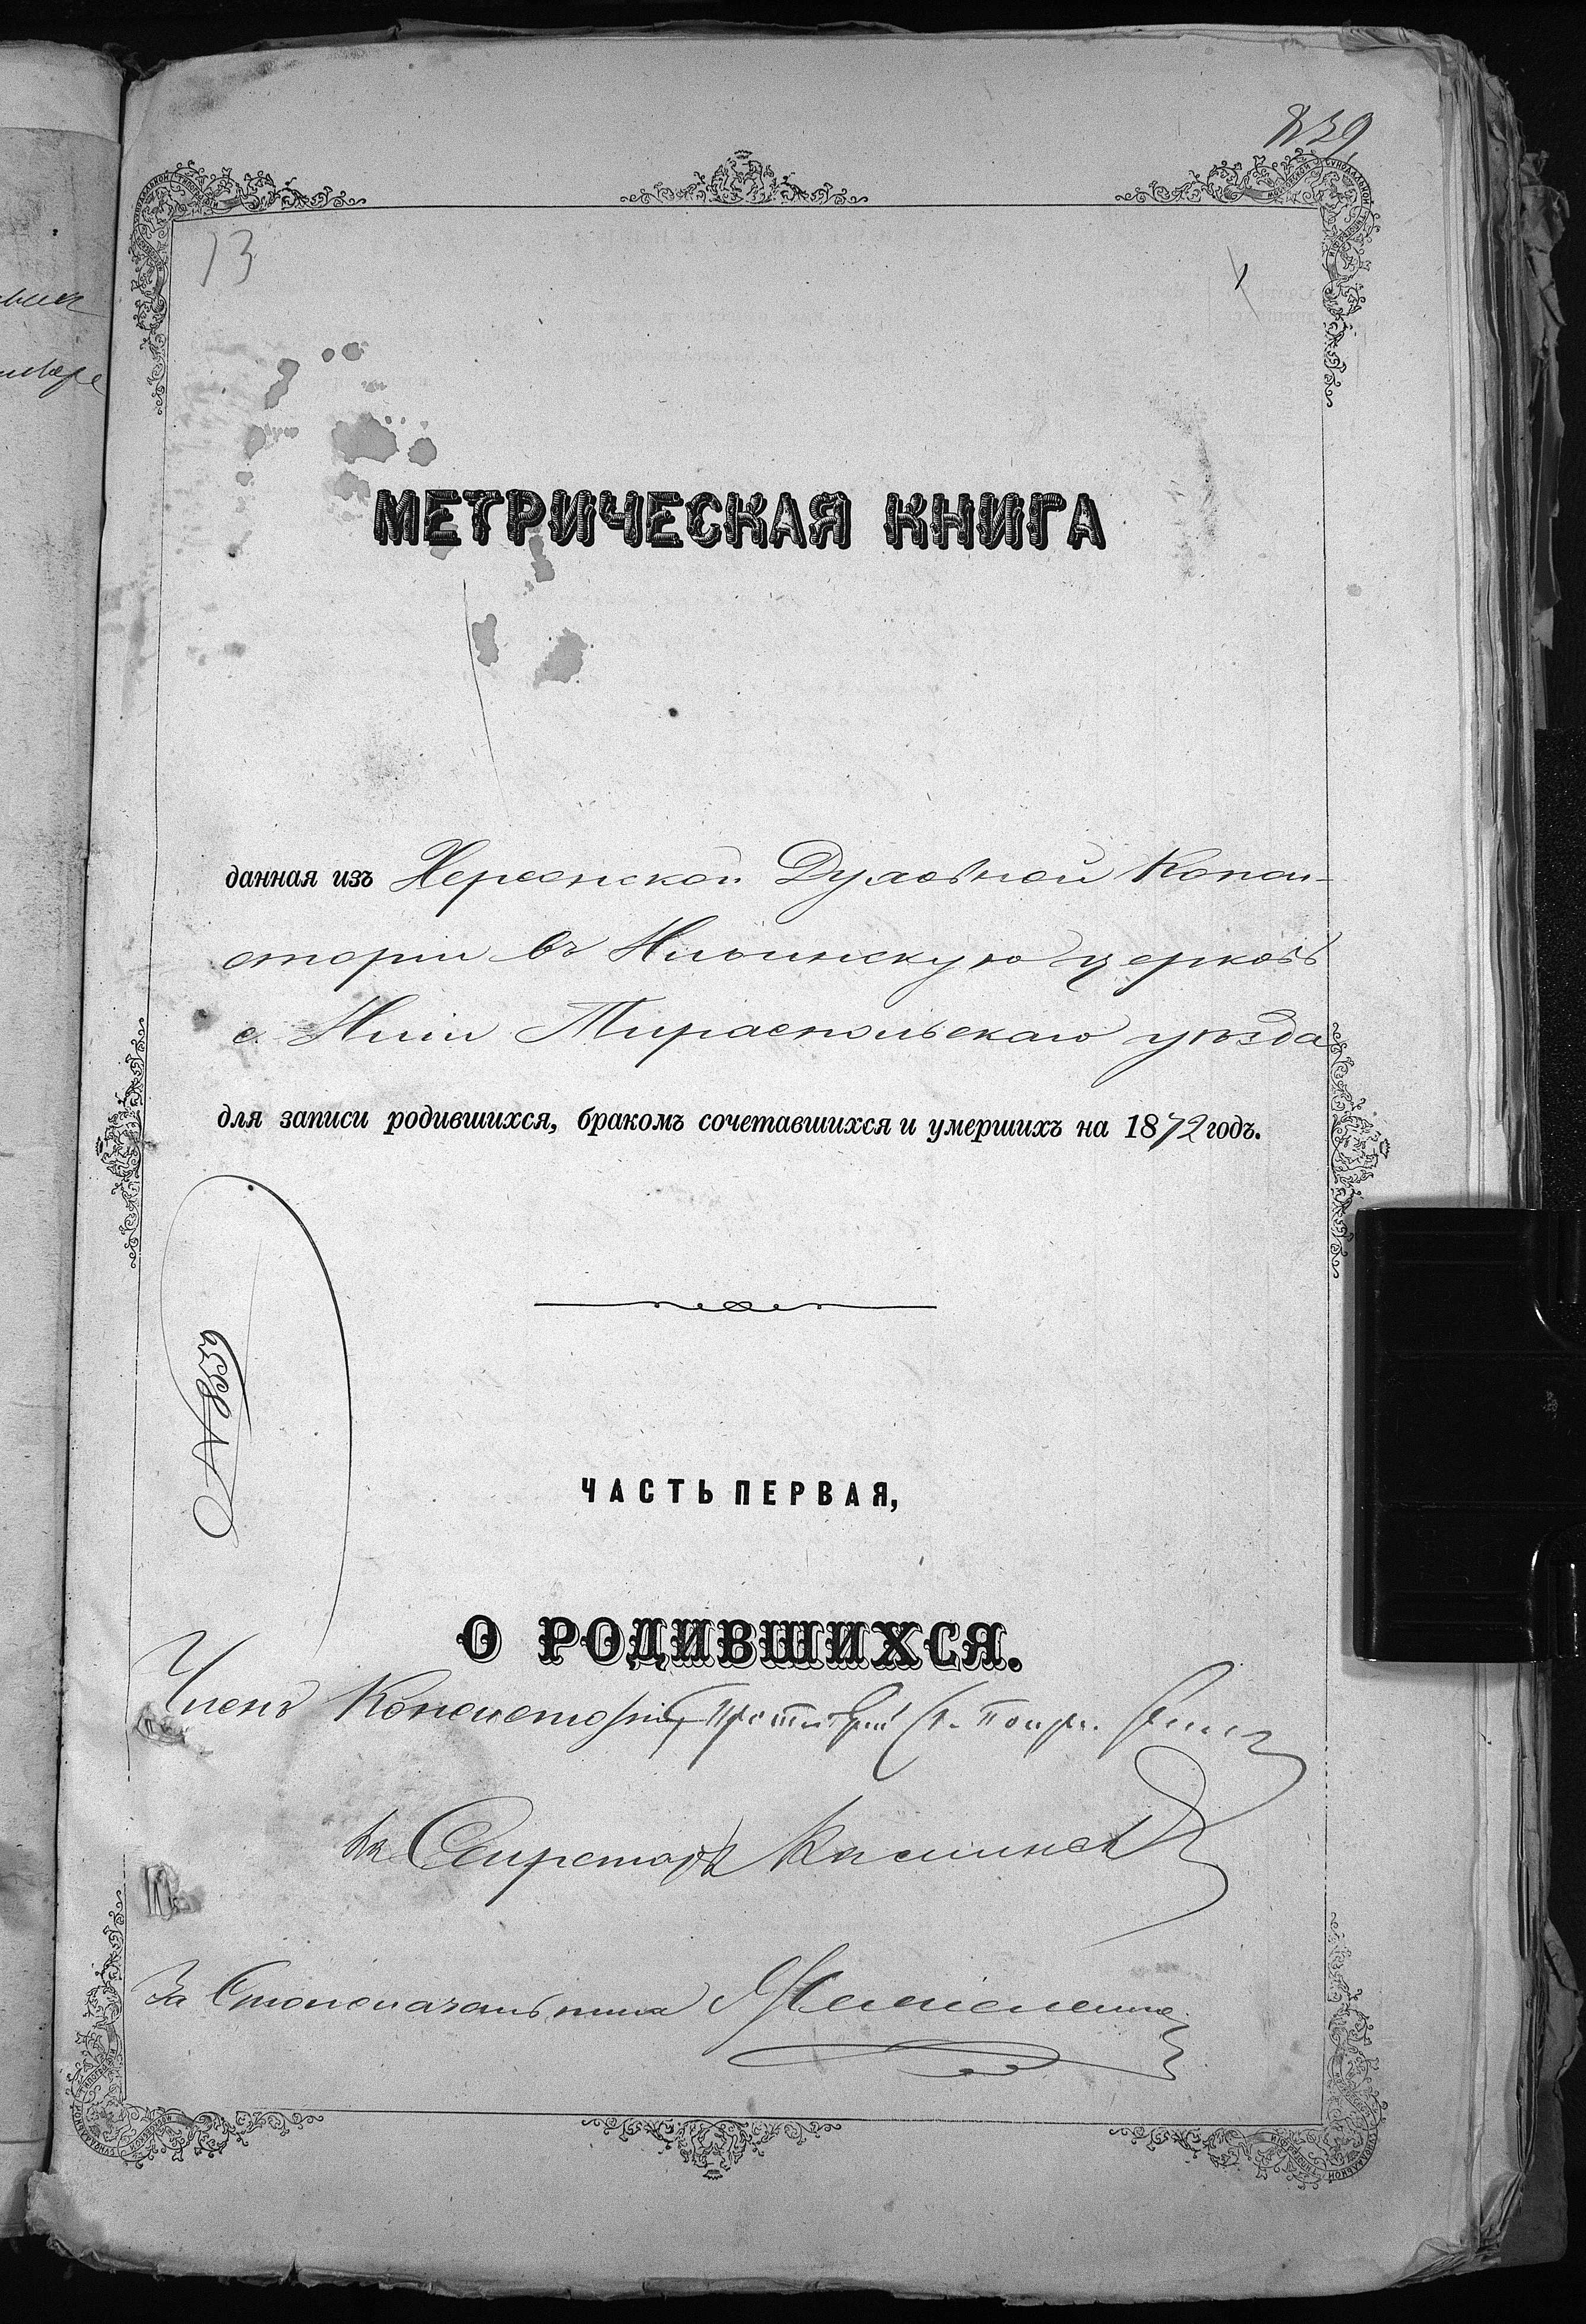 839
13
МЕТРИЧЕСКАЯ КНИГА
данная изъ Херсонской Духовной Конси-
сторіи въ Ильинскую церковь
с. Тираспольскаго уѣзда
для записи родившихся, бракомъ сочетавшихся и умершихъ на 1872 годъ.
№ 8539
ЧАСТЬ ПЕРВАЯ,
О РОДИВШИХСЯ.
Членъ Консисторіи, Протоіерей
Секретарь
За Столоначальника